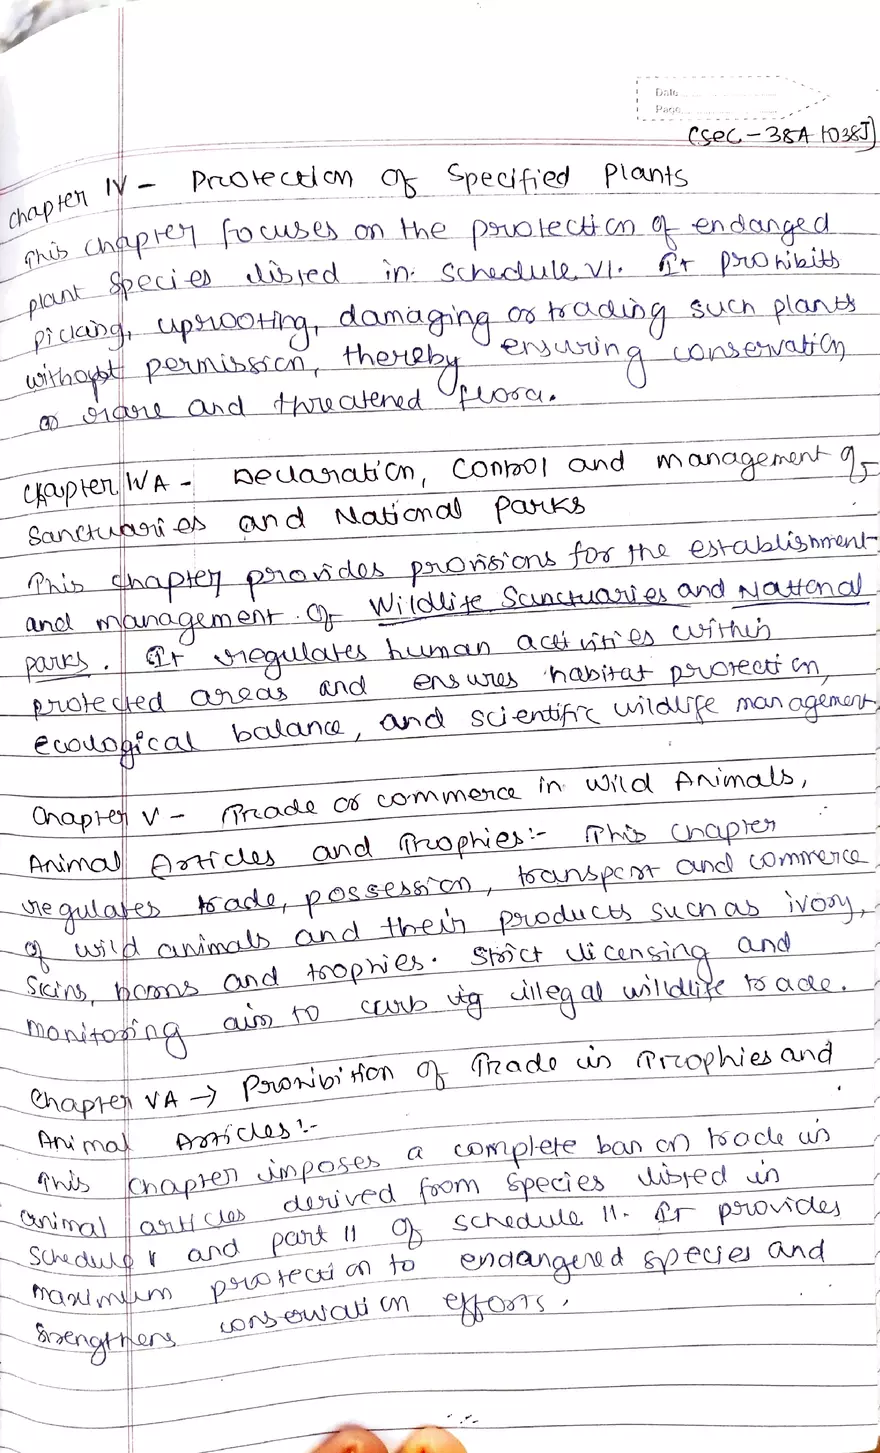 Date
Page
(Sec - 38A to 38J)
Chapter IV - Protection of Specified Plants
This chapter focuses on the protection of endanged
plant species listed in schedule VI. It prohibits
picking, uprooting, damaging or trading such plants
without permission, thereby ensuring conservation
of rare and threatened flora.
Chapter IVA - Declaration, Control and management of
Sanctuaries and National Parks
This chapter provides provisions for the establishment
and management of Wildlife Sanctuaries and National
parks. It regulates human activities within
protected areas and ensures habitat protection,
ecological balance, and scientific wildlife management
Chapter V - Trade or commerce in Wild Animals,
Animal Articles and Trophies:- This chapter
regulates trade, possession, transport and commerce
of wild animals and their products such as ivory,
Skins, horns and trophies. Strict licensing and
monitoring aim to curb illegal wildlife trade.
Chapter VA → Prohibition of Trade in Trophies and
Animal Articles:-
This chapter imposes a complete ban on trade in
animal articles derived from species listed in
Schedule I and part II of schedule II. It provides
maximum protection to endangered species and
strengthens conservation efforts.